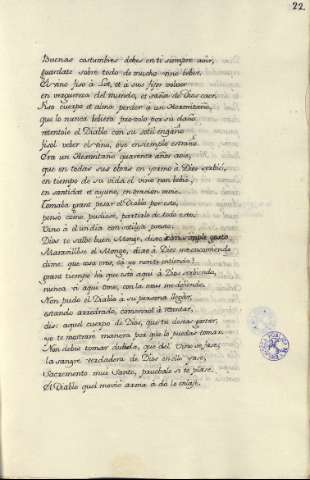 22
Buenas costumbres debes en ti siempre aver,
guardate sobre todo de mucho vino bever.
El vino fiso à Lot, et à sus fijas volver
en verguenza del mundo, et saña de Dios caer.
Fiso cuerpo et alma perder a un Hermitaño,
que lo nunca bebiera provolo por su daño
retentole el Diablo con su sotil engaño
fisol beber el vino, oye ensiemplo estraño.
Era un Hermitano quarenta años avie,
que en todas sus obras en yermo à Dios servie,
en tiempo de su vida el vino non bebie,
en santidat et ayuno, en oracion vivie.
Tomaba grant pesar el Diablo por esto,
penso como pudiese, partirlo de todo esto,
Vino à él un dia con sotileza presto;
Dios te salbe buen Monje, dixo con simple gesto
Maravillose el Monge, dias à Dios me encomiendo
dime que cosa eres, ca yo non te entiendo?
grant tiempo ha que estó aqui à Dios serbiendo,
nunca vi aqui ome, con la crus me defiendo.
Non pudo el Diablo à su persona llegar,
estando arredrado, comenzol à retentar,
dis: aquel cuerpo de Dios, que tu deseas gostar,
yo te mostraré manera por que lo puedas tomar.
Non debes tomar dubda, que del vino se fase,
la sangre verdadera de Dios en ello yase,
Sacramento mui Santo, pruebalo si te plase.
El Diablo quel movió arma à do lo enlase.